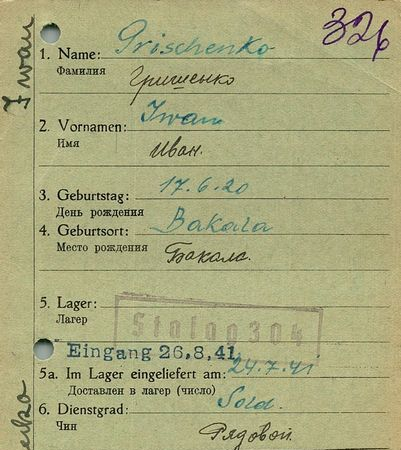 326
1. Name: Grischenko
Фамилия Гришенко
2. Vornamen: Iwan
Имя Иван.
3. Geburtstag: 17.6.20
День рождения
4. Geburtsort: Bakala
Место рождения Бакала.
5. Lager: Stalag 304
Лагерь
Eingang 26.8.41
5a. Im Lager eingeliefert am: 24.7.41
Доставлен в лагер (число)
6. Dienstgrad: Sold.
Чин Рядовой.
Iwan